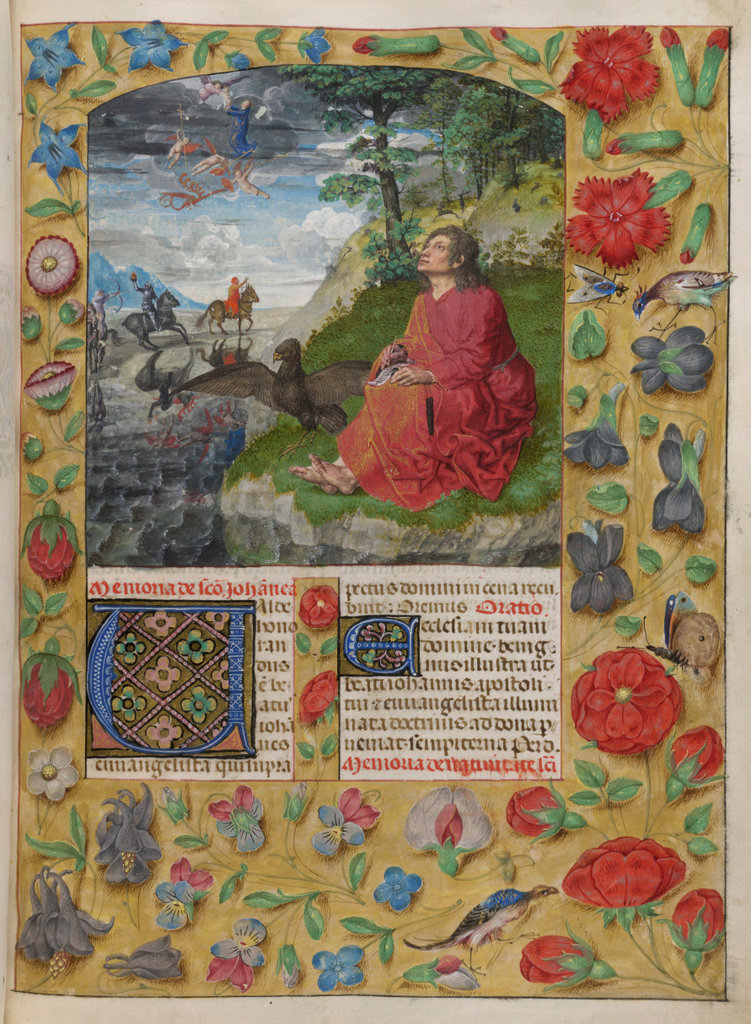 Memoria de sco Johāne
Valde
hono
ran
dus
ē be
atu⁹
iohā
nes
euuangelista qui supra
pectus domini in cena recu
buit: Oremus Oratio
Ecclesiam tuam
domine benig
nus illustra ut
beati iohannis apostoli
tui & euuangeliste illumi
nata doctrinis ad dona p
ueniat sempiterna Per d.
Memoria de natiuitate sci